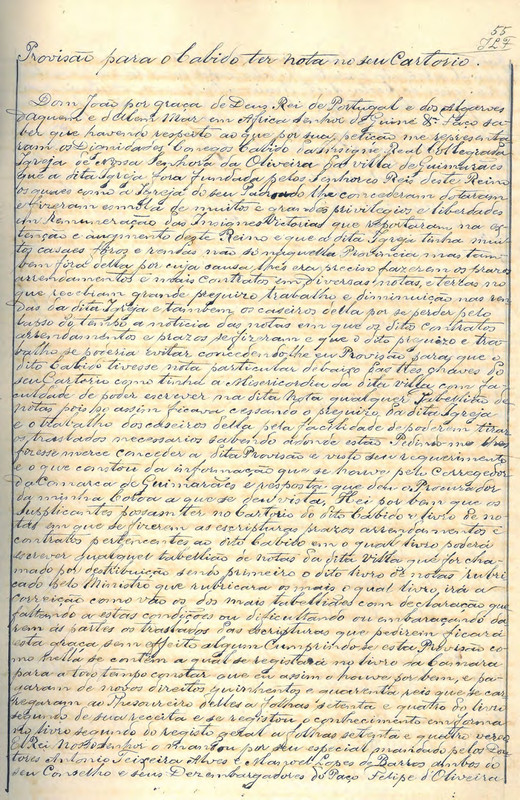 55
Provisão para o Cabido ter nota no seu Cartorio.
Dom João por graça de Deus Rei de Portugal e dos Algarves
daquem e dalem Mar em Africa Senhor de Guiné &ª Faço sa-
ber que havendo respeito ao que por sua petição me representa-
ram os Dignidades Conegos Cabido da insigne Real Collegiada
Igreja de Nossa Senhora da Oliveira da villa de Guimarães
que a dita Igreja fora fundada pelos Senhores Reis deste Reino
os quaes como a Igreja do seu Padroado lhe concederam doturam
e fizeram esmola de muitos e grandes privilegios e liberdades
em Remuneração das Insignes Victorias que alportaram, na ex-
tenção e augmento deste Reino e que a dita Igreja tinha mui-
tos casaes foros e rendas não só naquella Provincia mas tam-
bem fóra della, por cuja causa lhes era preciso fazerem os prazos
arrendamentos e mais contratos em diversas notas, e terras no
que recebiam grande prejuizo trabalho e diminuição nas ren-
das da dita Igreja e tambem os caseiros della por se perder pelo
lapso do tempo a noticia das notas em que os dito contratos
arrendamentos e prazos se fizeram e que o dito prejuizo e tra-
balho se poderia evitar concedendo-lhe eu Provisão para que o
dito Cabido tivesse nota particular debaixo das tres chaves do
seu Cartorio como tinha a Misericordia da dita villa com fa-
culdade de poder escrever na dita Nota qualquer Tabellião de
notas pois só assim ficava cessando o prejuizo da dita Igreja
e o trabalho dos caseiros della pela facilidade de poderem tirar
os traslados necessarios sabendo adonde estão Pedindo-me lhes
fizesse merce conceder a dita Provisão e visto seu requerimento
e o que constou da informação que se houve pelo Corregedor
da Comarca de Guimarães e resposta que deu o Procurador
da minha Corôa a que se deu vista. Hei por bem que os
Suplicantes possam ter no Cartorio do dito Cabido o livro de no-
tas em que se fizerem as escripturas prazos arrendamentos e
contratos pertencentes ao dito Cabido em o qual livro poderá
escrever qualquer tabellião de notas da dita villa que for cha-
mado por destribuição sendo primeiro o dito livro de notas rubri-
cado pelo Ministro que rubricara os mais o qual livro irá a
correição como vão os dos mais tabelliães com declaração que
faltando a estas condições ou dificultando ou embaraçando da-
rem ás partes os traslados das escripturas que pedirem ficará
esta graça sem effeito algum Cumprindo-se esta Provisão co-
mo nella se contem a qual se registará no livro da Camara
para a todo tempo constar que eu assim o houve por bem, e pa-
garam de novos direitos quinhentos e quarenta reis que se car-
regaram ao Thesoureiro delles a folhas setenta e quatro do livro
segundo de sua receita e se registou o conhecimento em forma
no livro segundo do registo geral a folhas setenta e quatro verso
El Rei Nosso Senhor o mandou por seu especial mandado pelos Dou-
tores Antonio Teixeira Alves e Manoel Lopes de Barros ambos do
seu Conselho e seus Dezembargadores do Paço Felipe d'Oliveira